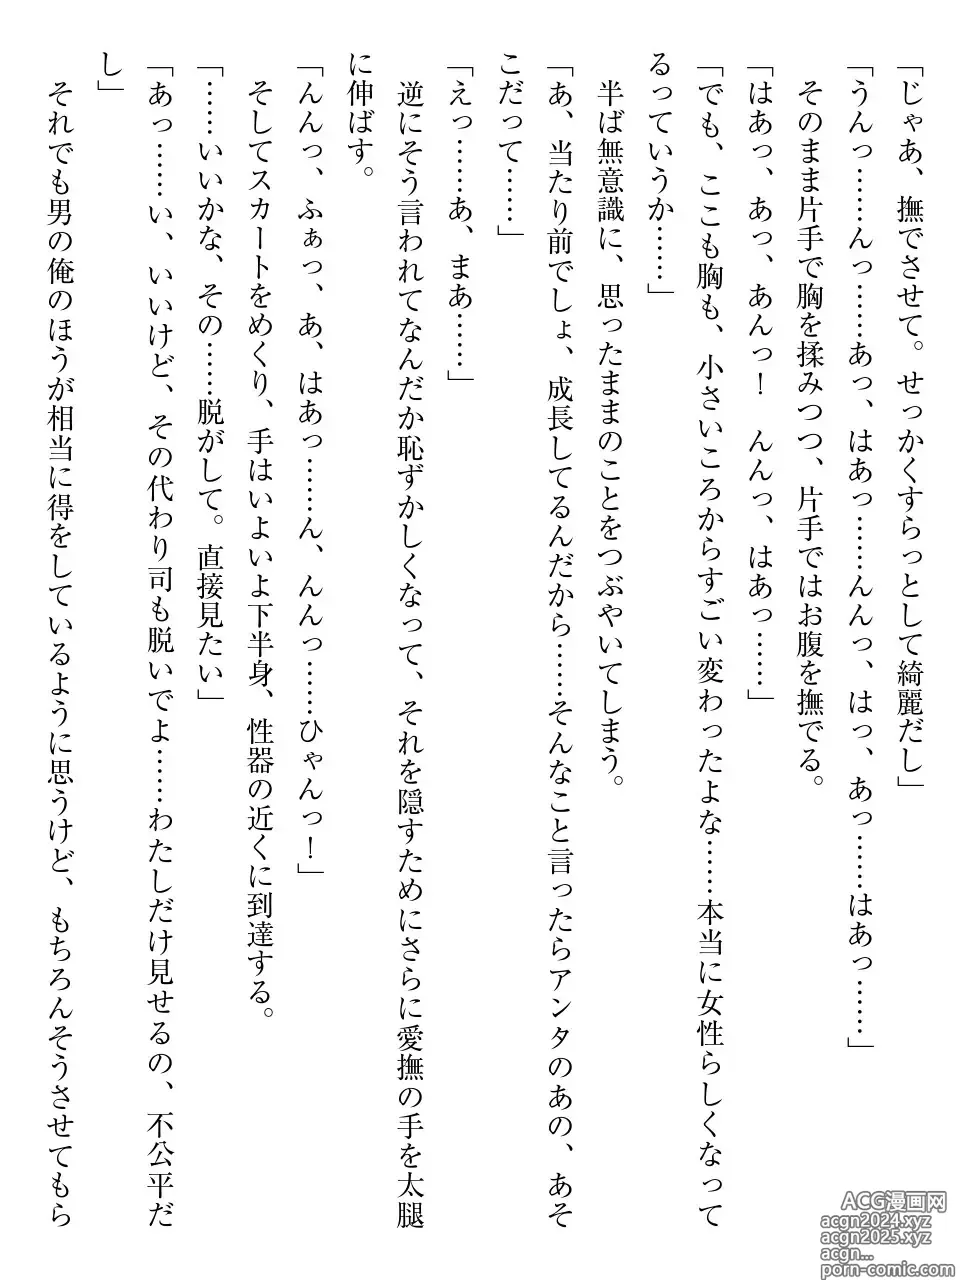 「じゃあ、撫でさせて。せっかくすらっとして綺麗だし」
「うんっ……んっ……あっ、はあっ……んんっ、はっ、あっ……はあっ……」
そのまま片手で胸を揉みつつ、片手ではお腹を撫でる。
「はあっ、あっ、あんっ！　んんっ、はあっ……」
「でも、ここも胸も、小さいころからすごい変わったよな……本当に女性らしくなって
るっていうか……」
半ば無意識に、思ったままのことをつぶやいてしまう。
「あ、当たり前でしょ、成長してるんだから……そんなこと言ったらアンタのあの、あそ
こだって……」
「えっ……あ、まあ……」
逆にそう言われてなんだか恥ずかしくなって、それを隠すためにさらに愛撫の手を太腿
に伸ばす。
「んんっ、ふぁっ、あ、はあっ……ん、んんっ……ひゃんっ！」
そしてスカートをめくり、手はいよいよ下半身、性器の近くに到達する。
「……いいかな、その……脱がして。直接見たい」
「あっ……い、いいけど、その代わり司も脱いでよ……わたしだけ見せるの、不公平だ
し」
それでも男の俺のほうが相当に得をしているように思うけど、もちろんそうさせてもら
ACG漫画网
acgn2024.xyz
acgn2025.xyz
acgn...
porn-comic.com